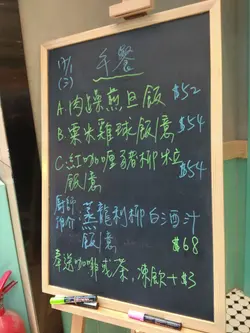 午餐
(二)
A.肉燥煎旦飯 $52
B.粟米雞球飯/意 $54
C.紅咖喱豬柳粒
飯/意 $54
廚師
推介:蒸龍利柳白酒汁
飯/意 $68
奉送咖啡或茶,凍飲+$3